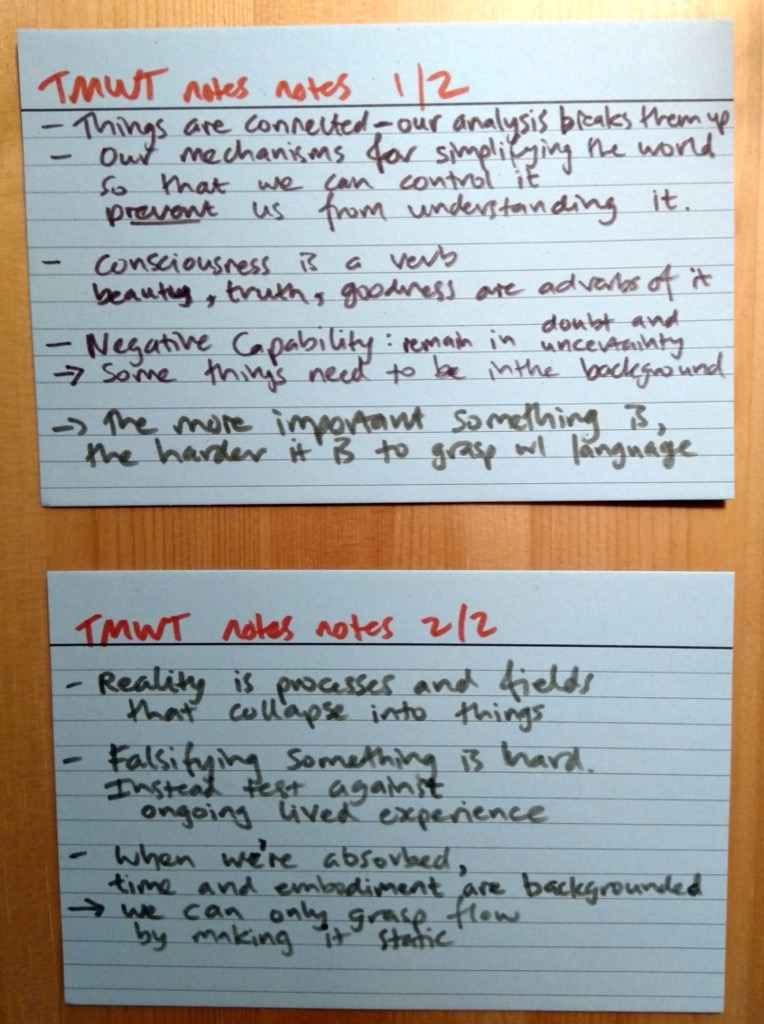 TMWT notes notes 1/2
- Things are connected - our analysis breaks them up
- Our mechanisms for simplifying the world
so that we can control it
prevent us from understanding it.
- Consciousness is a verb
beauty, truth, goodness are adverbs of it
- Negative Capability: remain in doubt and uncertainty
→ Some things need to be in the background
→ The more important something is,
the harder it is to grasp w/ language
TMWT notes notes 2/2
- Reality is processes and fields
that collapse into things
- Falsifying something is hard.
Instead test against
ongoing lived experience
- When we're absorbed,
time and embodiment are backgrounded
→ we can only grasp flow
by making it static